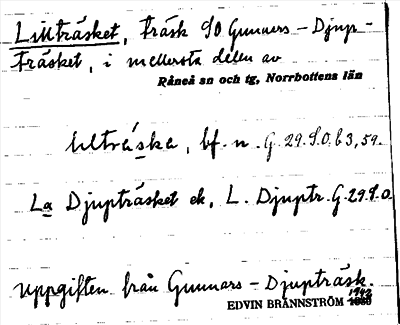 Lillträsket, träsk SO Gunnars-Djup-
träsket, i mellersta delen av
Råneå sn och tg, Norrbottens län
bf. n. G. 29.9.0. b 3, 59.
La Djupträsket ek, L. Djuptr. G. 29.9.0
Uppgiften från Gunnars-Djupträsk.
1942
EDVIN BRÄNNSTRÖM